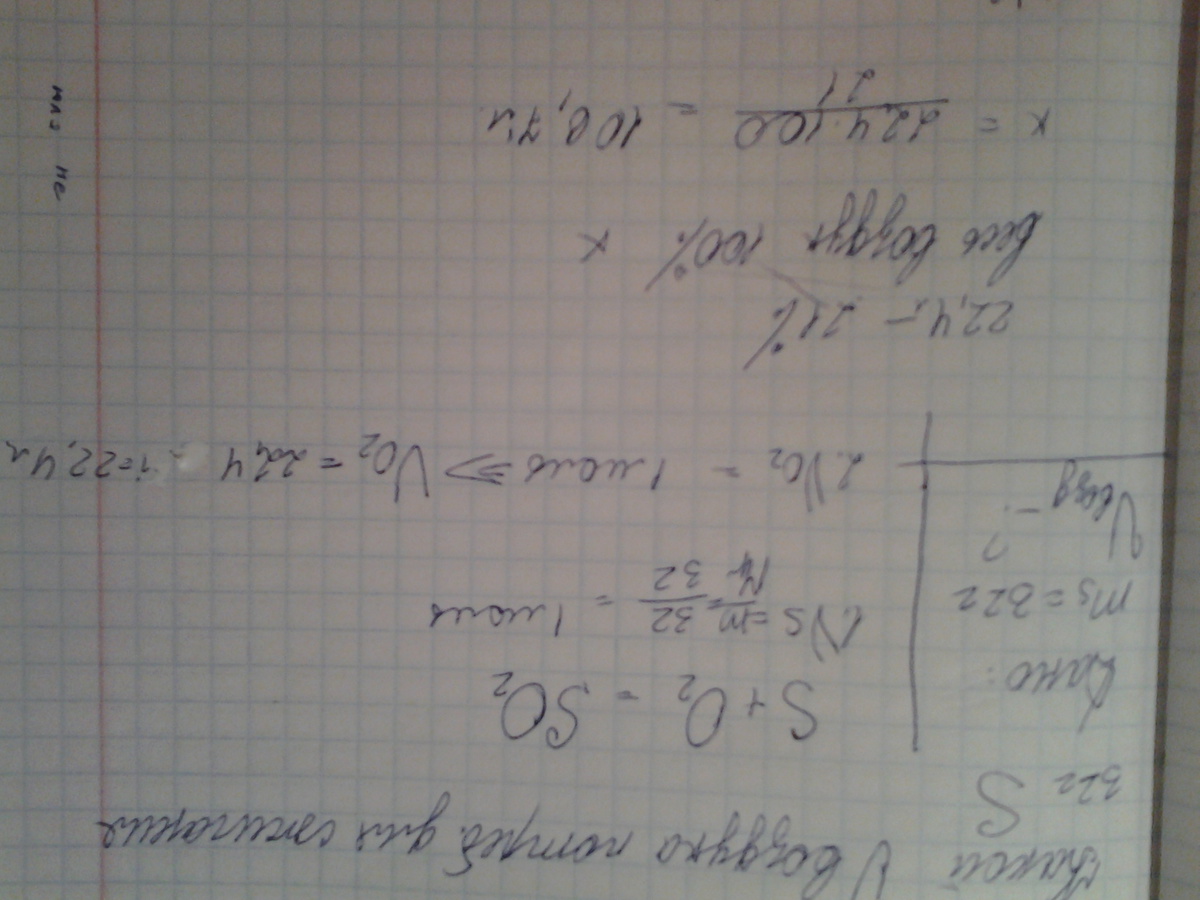 Какой V воздуха потреб. для сжигания
32г S
Дано:
ms = 32г
Vвозд - ?
S + O2 = SO2
1) νs = m/Mr = 32/32 = 1 моль
2. νO2 = 1 моль => VO2 = 22,4 · 1 = 22,4 л
22,4л – 21%
весь воздух 100% x
x = 22,4·100/21 = 106,7л